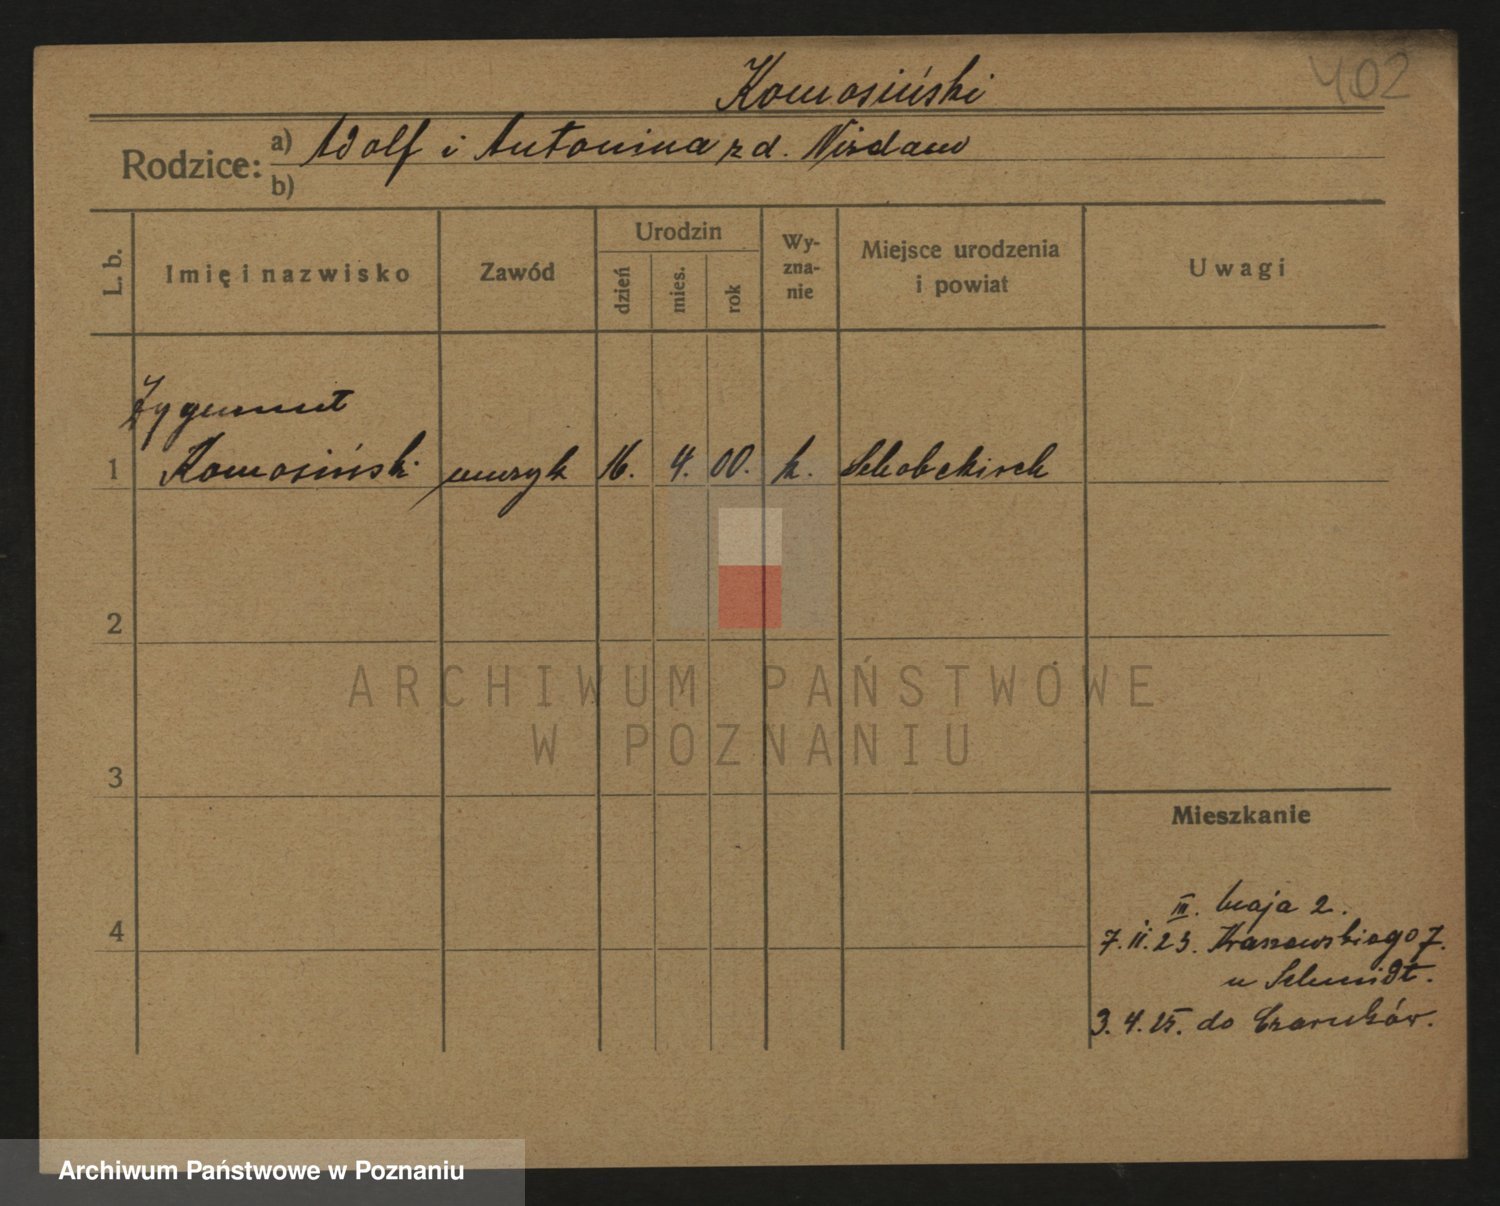 402
Komosiński
Rodzice: a) Adolf i Antonina z d. Nisdaw
b)
L. b. Imię i nazwisko Zawód Urodzin dzień mies. rok Wyznanie Miejsce urodzenia i powiat Uwagi
Zygmunt
1 Komosiński muzyk 16. 4. 00. k.
2
ARCHIWUM PAŃSTWOWE
W POZNANIU
3
Mieszkanie
4
III. maja 2.
7.II.23. Kraszewskiego 7.
u Schmidt.
3.4.25. do Czarnków.
Archiwum Państwowe w Poznaniu